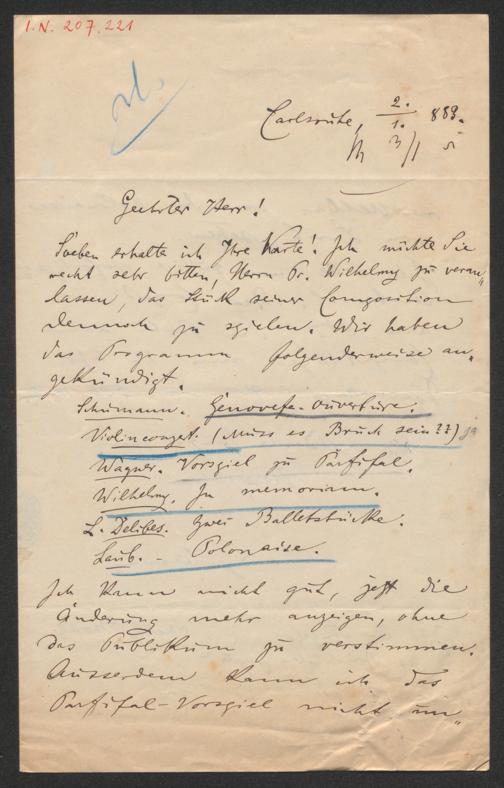 I.N. 207.221
Carlsruhe, 2./1. 883.
3/1
Geehrter Herr!
Soeben erhalte ich Ihre Karte! Ich möchte Sie
recht sehr bitten, Herrn Pr. Wilhelmy zu veran„
lassen, das Stück seiner Composition
dennoch zu spielen. Wir haben
das Programm folgenderweise an„
gekündigt.
Schumann. Genovefa-Ouvertüre.
Violinconzert. (Muss es Bruch sein??) ja
Wagner. Vorspiel zu Parsifal.
Wilhelmy. In memoriam.
L. Delibes. Zwei Balletstücke.
Laub. - Polonaise.
Ich kann nicht gut, jetzt die
Änderung mehr anzeigen, ohne
das Publikum zu verstimmen.
Ausserdem kann ich das
Parsifal-Vorspiel nicht un„